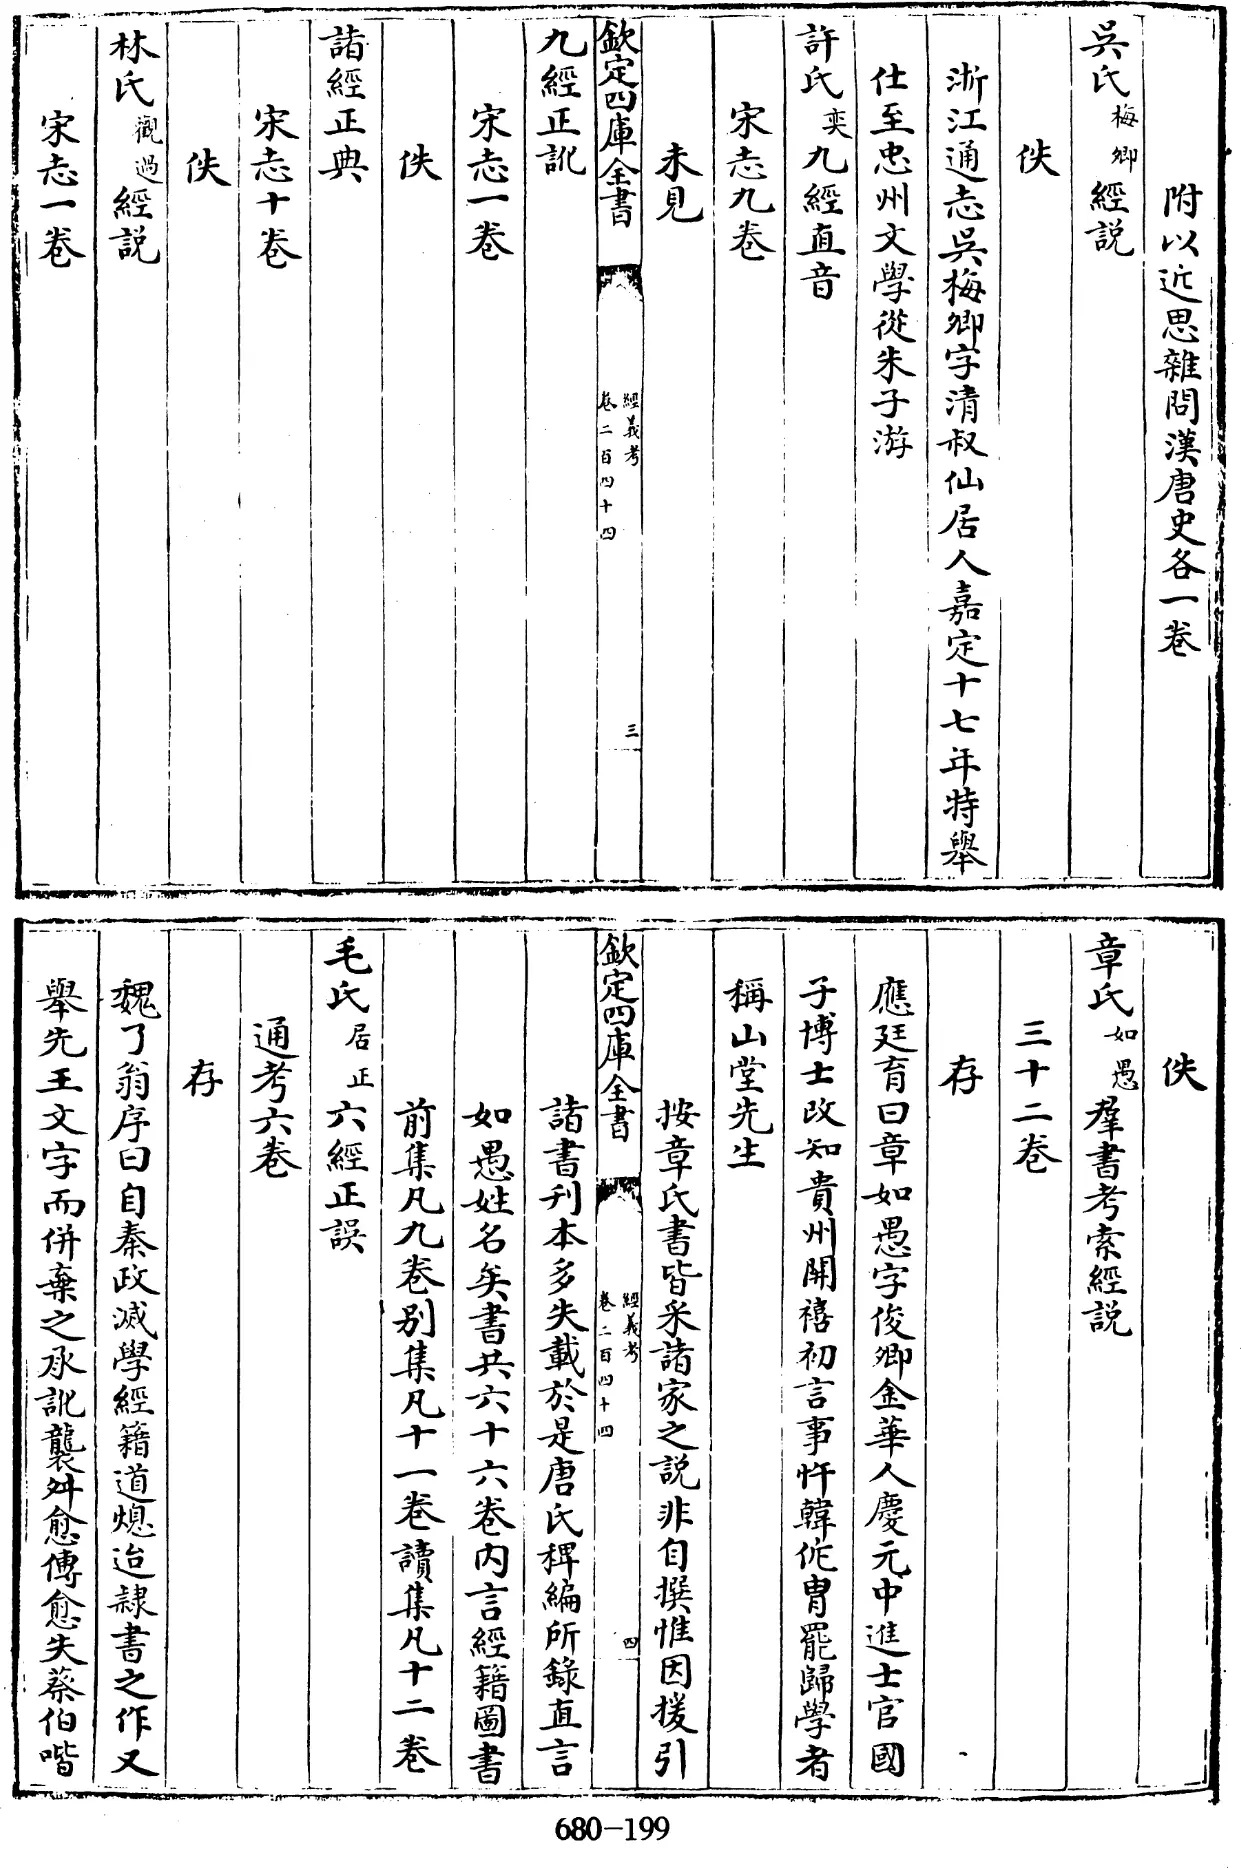 附以近思雜問漢唐史各一卷
吳氏梅卿經説
佚
浙江通志吳梅卿字清叔仙居人嘉定十七年特舉
仕至忠州文學從朱子游
許氏奕九經直音
宋志九卷
未見
欽定四庫全書
經義考
卷二百四十四
三
九經正訛
宋志一卷
佚
諸經正典
宋志十卷
佚
林氏觀過經説
宋志一卷
佚
章氏如愚羣書考索經説
三十二卷
存
應廷育曰章如愚字俊卿金華人慶元中進士官國
子博士改知貴州開禧初言事忤韓侂胄罷歸學者
稱山堂先生
按章氏書皆采諸家之説非自撰惟因援引
欽定四庫全書
經義考
卷二百四十四
四
諸書刊本多失載於是唐氏稗編所錄直言
如愚姓名矣書共六十六卷内言經籍圖書
前集凡九卷别集凡十一卷讀集凡十二卷
毛氏居正六經正誤
通考六卷
存
魏了翁序曰自秦政滅學經籍道熄迨隷書之作又
舉先王文字而併棄之承訛襲舛愈傳愈失蔡伯喈
680-199